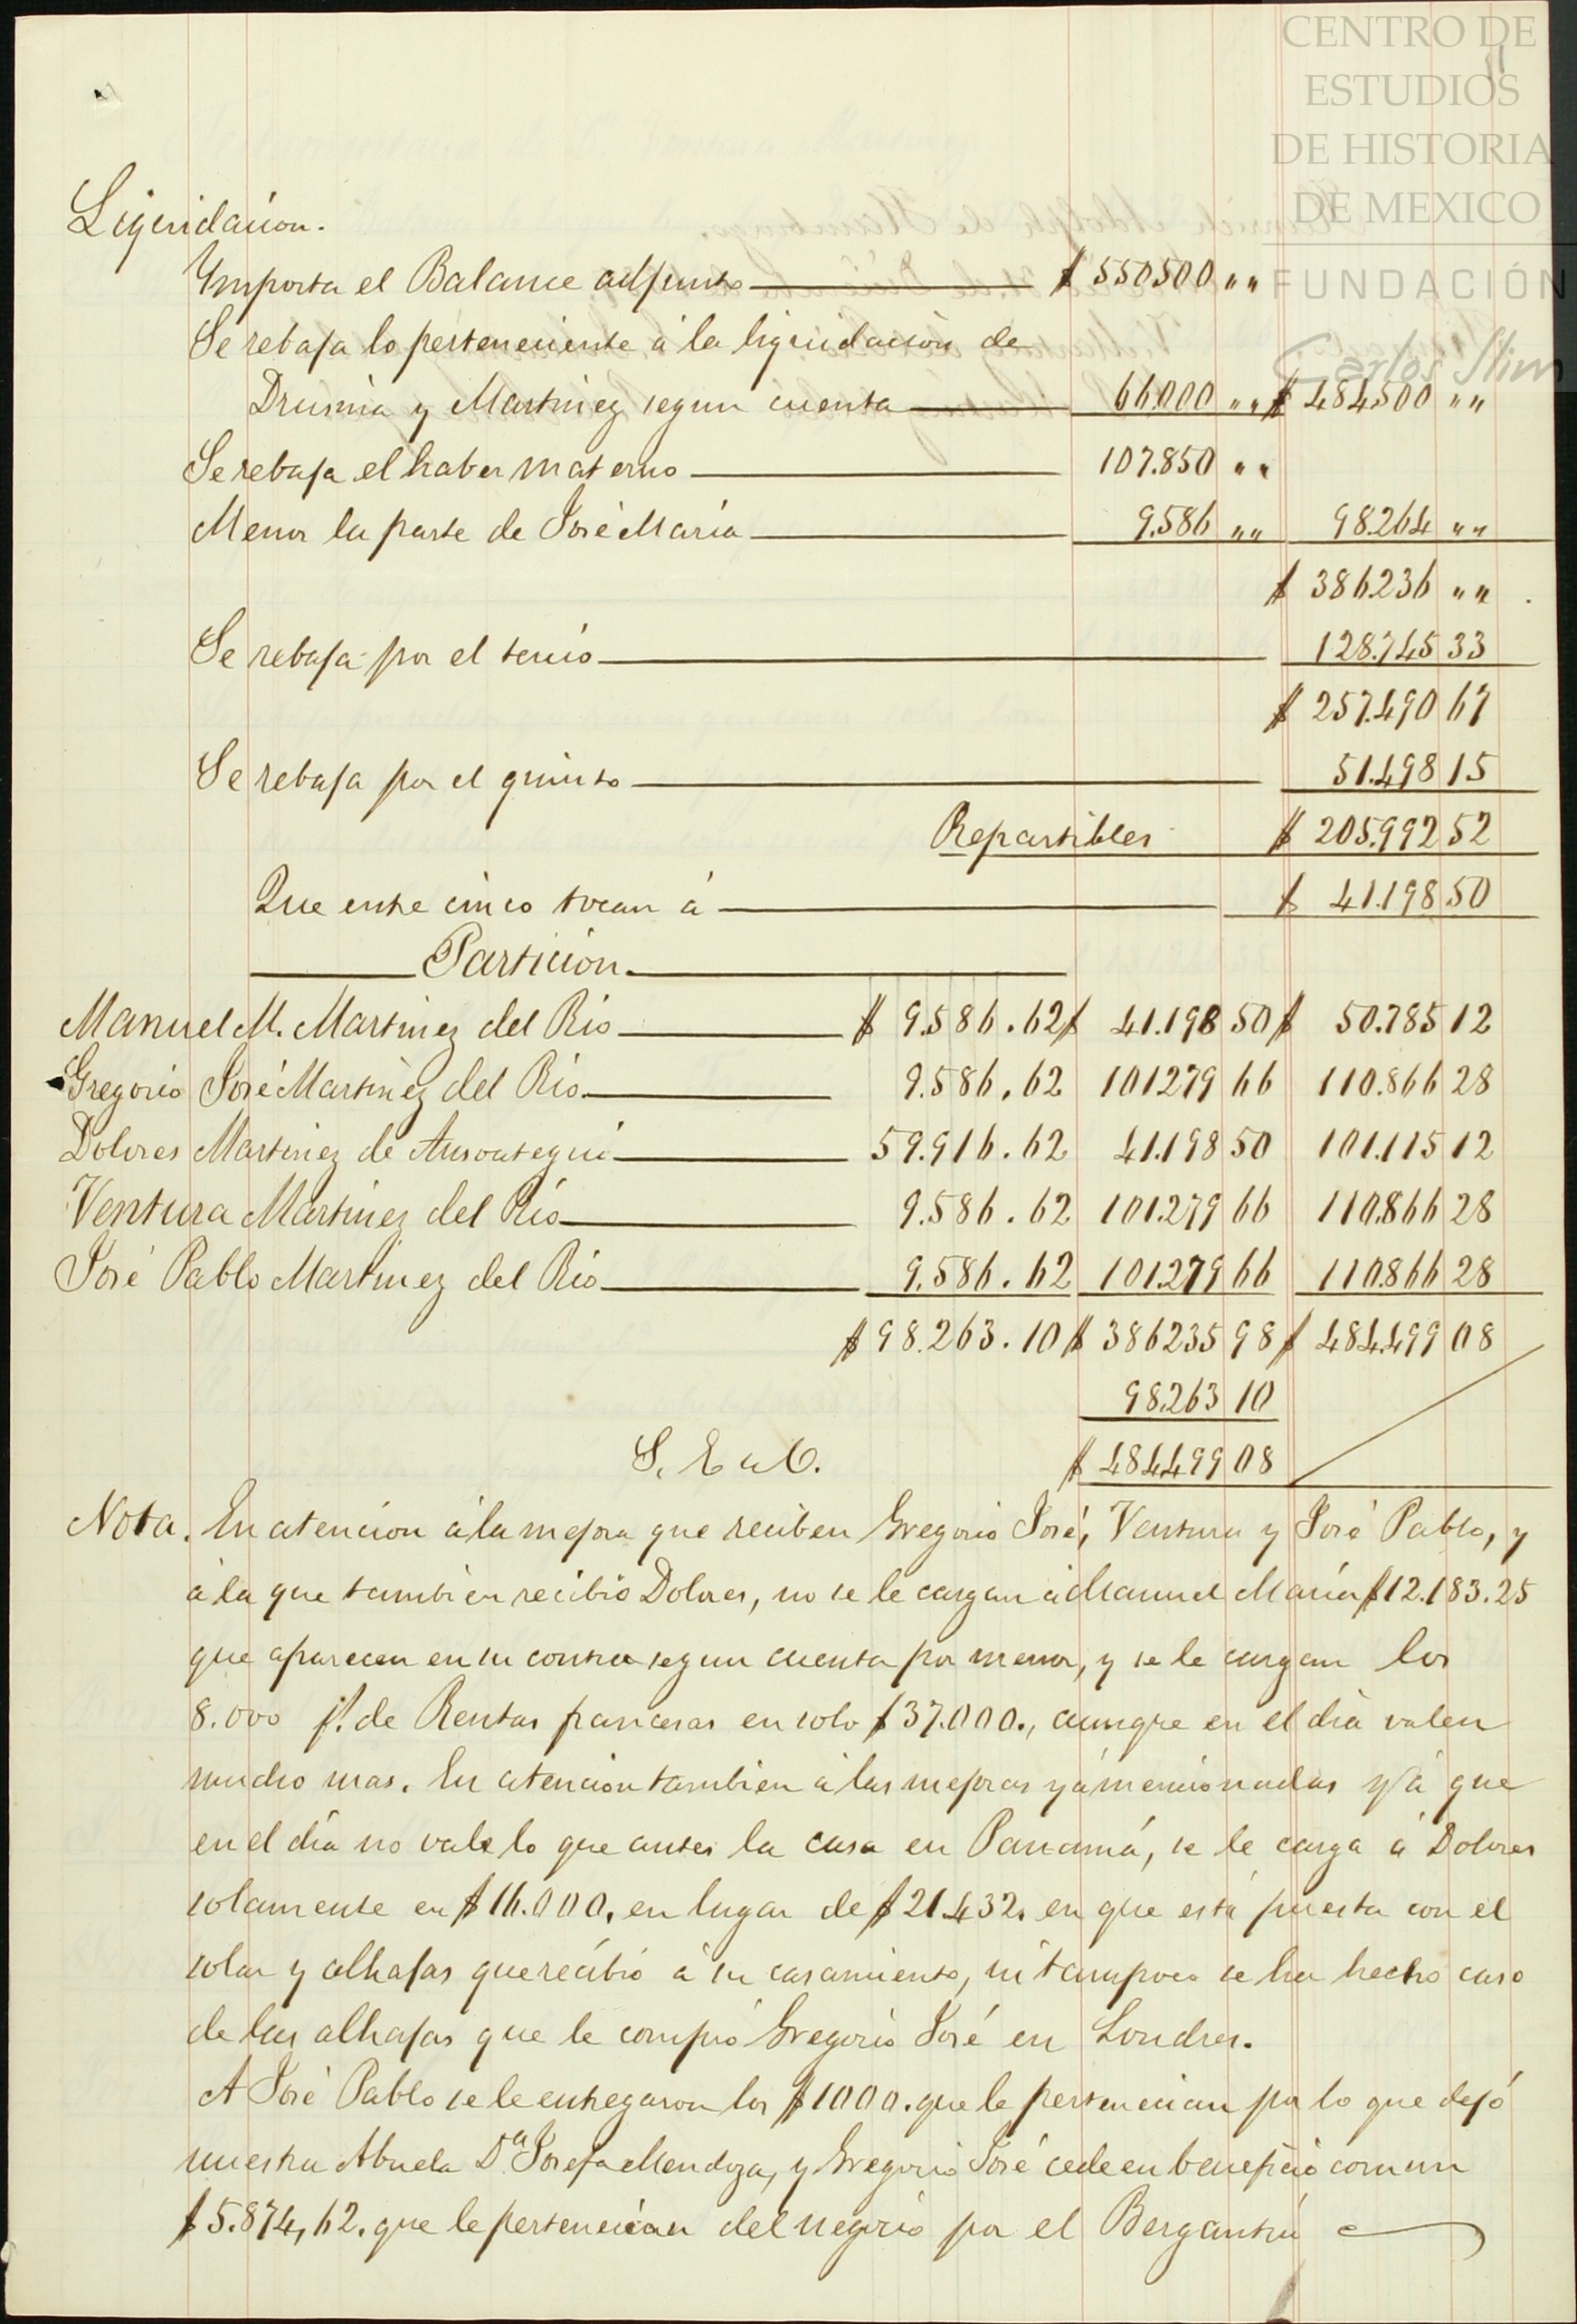 CENTRO DE
ESTUDIOS
DE HISTORIA
DE MEXICO
FUNDACIÓN
Carlos Slim
Liquidacion.
Ymporta el Balance adjunto $ 550500 " "
Se rebaja lo perteneciente à la liquidacion de
Drusina y Martinez segun cuenta 66.000 " " $ 484.500 " "
Se rebaja el haber materno 107.850 " "
Menos la parte de José María 9.586 " " 98.264 " "
$ 386.236 " "
Se rebaja por el tercio 128.745 33
$ 257.490 67
Se rebaja por el quinto 51.498 15
Repartibles $ 205.992 52
Que entre cinco tocan á $ 41.198 50
Particion.
Manuel M. Martinez del Rio $ 9.586.62 $ 41.198 50 $ 50.785 12
Gregorio José Martinez del Rio. 9.586.62 101279 66 110.866 28
Dolores Martinez de Ansoategui 59.916.62 41.198 50 101.115 12
Ventura Martinez del Rio 9.586.62 101.279 66 110.866 28
José Pablo Martinez del Rio 9.586.62 101.279 66 110.866 28
$ 98.263.10 $ 386235 98 $ 484.499 08
98.263 10
S. E u O. $ 484499 08
Nota. En atencion á la mejora que reciben Gregorio José, Ventura y José Pablo, y
á la que tambien recibió Dolores, no se le cargan á Manuel María $12.183.25
que aparecen en su contra segun cuenta por menor, y se le cargan los
8.000 f. de Rentas francesas en solo $37.000., aunque en el dia valen
mucho mas. En atencion tambien á las mejoras yá mencionadas y á que
en el día no vale lo que antes la casa en Panamá, se le carga á Dolores
solamente en $16.000. en lugar de $21.432. en que está puesta con el
solar y alhajas que recibió á su casamiento, ni tampoco se ha hecho caso
de las alhajas que le compró Gregorio José en Londres.
A José Pablo se le entregaron los $1000. que le pertenecian por lo que dejó
nuestra Abuela Dª Josefa Mendoza, y Gregorio José cede en beneficio comun
$5.874,62. que le pertenecian del negocio por el Bergantin